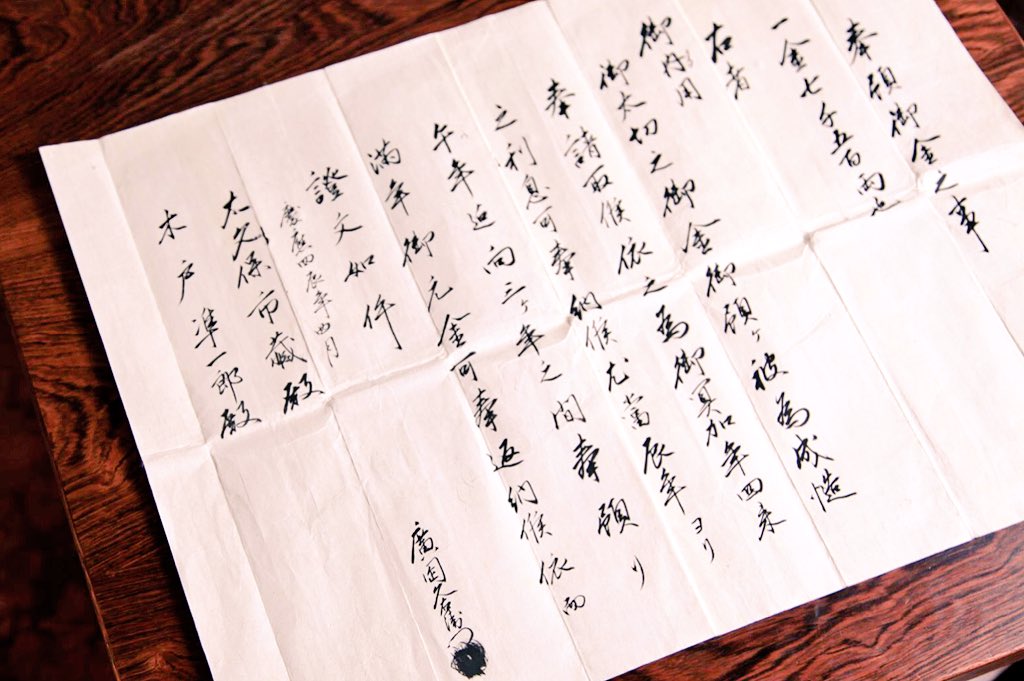 奉預御金之事
一金七千五百両也
右者
御内用
御太切之御金御預ヶ被為成慥
奉請取候依之為御冥加年四朱
之利息可奉納候尤當辰年ヨリ
午年迠向三ヶ年之間奉預り
満年御元金可奉返納候依而
證文如件
慶應四辰年四月
廣岡久右衛門
大久保市藏殿
木戸準一郎殿